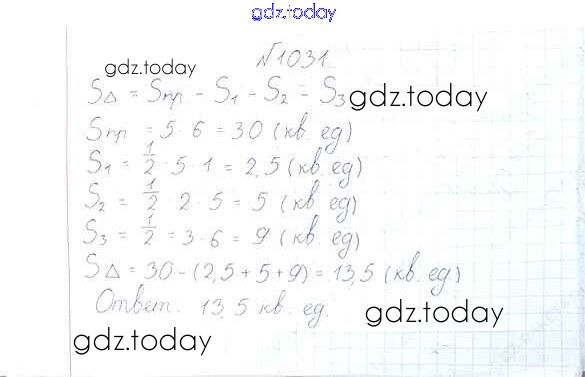 gdz.today
№1031
gdz.today
S△ = Sпр - S1 - S2 - S3
gdz.today
Sпр = 5 · 6 = 30 (кв. ед)
S1 = 1/2 · 5 · 1 = 2,5 (кв. ед)
S2 = 1/2 · 2 · 5 = 5 (кв. ед)
S3 = 1/2 = 3 · 6 = 9 (кв. ед)
S△ = 30 - (2,5 + 5 + 9) = 13,5 (кв. ед)
Ответ. 13,5 кв. ед.
gdz.today
gdz.today